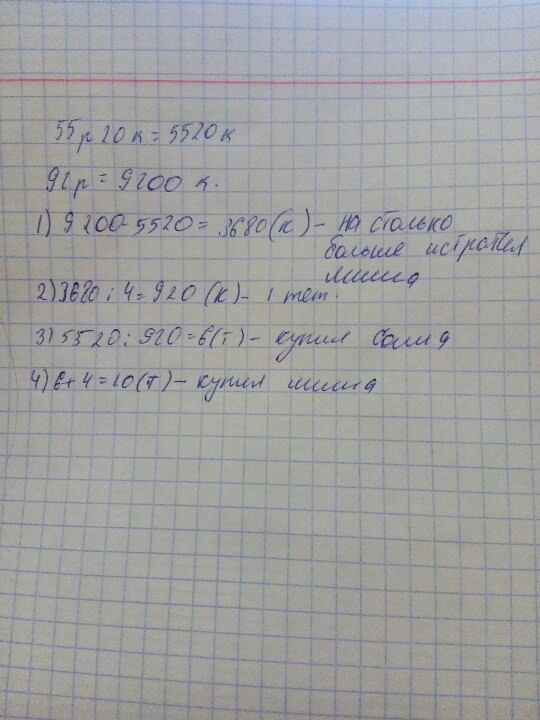 55р 20 к = 5520 к
92р = 9200 к.
1) 9200 - 5520 = 3680 (к) - на столько
больше истратил
миша
2) 3680 : 4 = 920 (к) - 1 тет.
3) 5520 : 920 = 6 (т) - купил
4) 6 + 4 = 10 (т) - купил миша